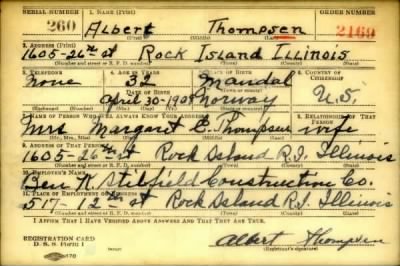 SERIAL NUMBER 1. NAME (Print) ORDER NUMBER
260 Albert Thompsen 2169
2. ADDRESS (Print)
1605-26th st Rock Island Illinois
(Number and street or R. F. D. number) (Town) (County) (State)
3. TELEPHONE 4. AGE IN YEARS 5. PLACE OF BIRTH 6. COUNTRY OF CITIZENSHIP
None 32 Mandal
DATE OF BIRTH
April 30-1908 Norway U.S.
7. NAME OF PERSON WHO WILL ALWAYS KNOW YOUR ADDRESS 8. RELATIONSHIP OF THAT PERSON
Mrs Margaret C. Thompsen wife
(Mr., Mrs., Miss) (First) (Middle) (Last)
9. ADDRESS OF THAT PERSON
1605 26th st Rock Island R.I. Illinois
(Number and street or R. F. D. number) (Town) (County) (State)
10. EMPLOYER'S NAME
Ben Construction Co.
11. PLACE OF EMPLOYMENT OR BUSINESS
517-12th st Rock Island R.I. Illinois
(Number and street or R. F. D. number) (Town) (County) (State)
I AFFIRM THAT I HAVE VERIFIED ABOVE ANSWERS AND THAT THEY ARE TRUE.
REGISTRATION CARD
D. S. S. Form 1
Albert Thompsen
(Registrant's signature)